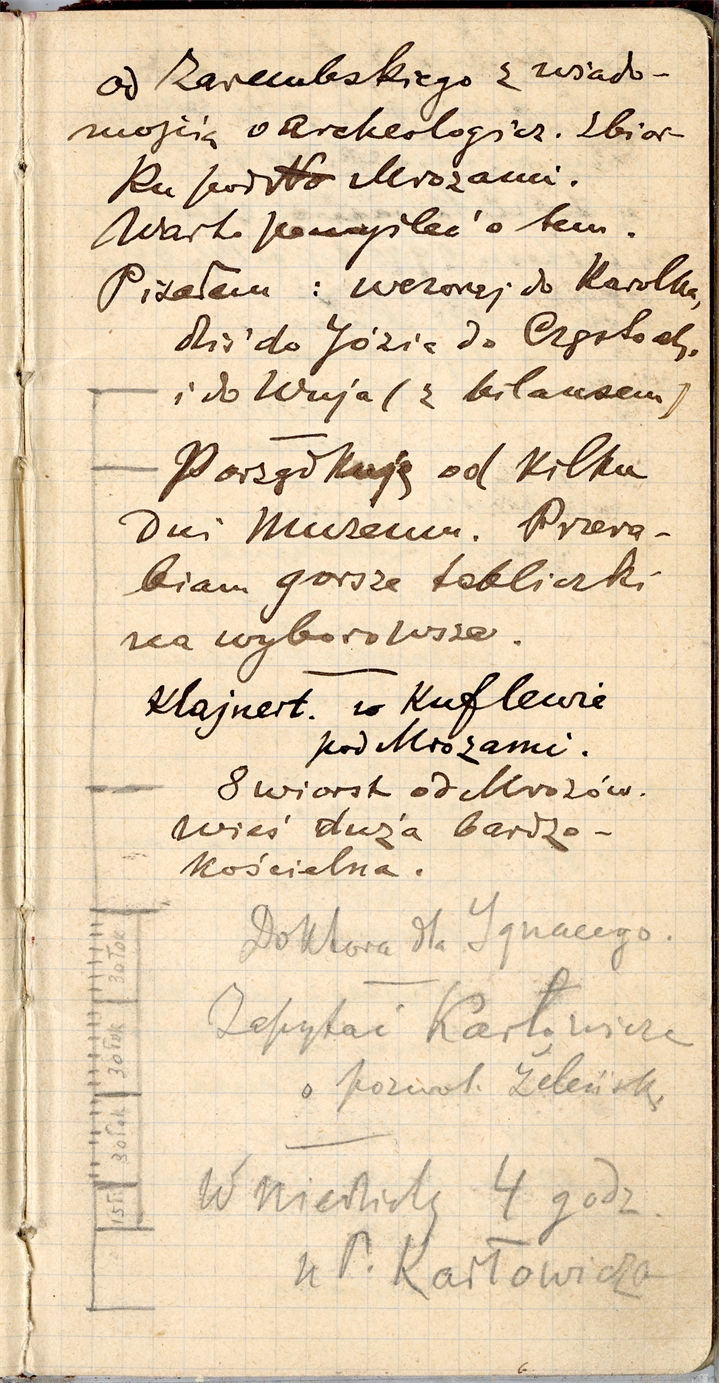 od Zarembskiego z wiado-
mością o archeologicz. zbior-
ku pod Mrozami.
Warto pomyśleć o tem.
Pisałem : wczoraj do Karolka,
dziś do Józia do Częstoch.
i do Wuja (z bilansem)
Porządkuję od kilku
dni Muzeum. Przera-
biam gorsze tabliczki
na wyborowsze.
Klajnert. w Kuflewie
pod Mrozami.
8 wiorst od Mrozów.
wieś duża bardzo -
kościelna.
Doktora dla Ignacego.
Zapytać Karłowicza
o pozwol. Żeleńsk.
W Niedzielę 4 godz.
u P. Karłowicza
30 łok
30 łok
30 łok
15 ł.